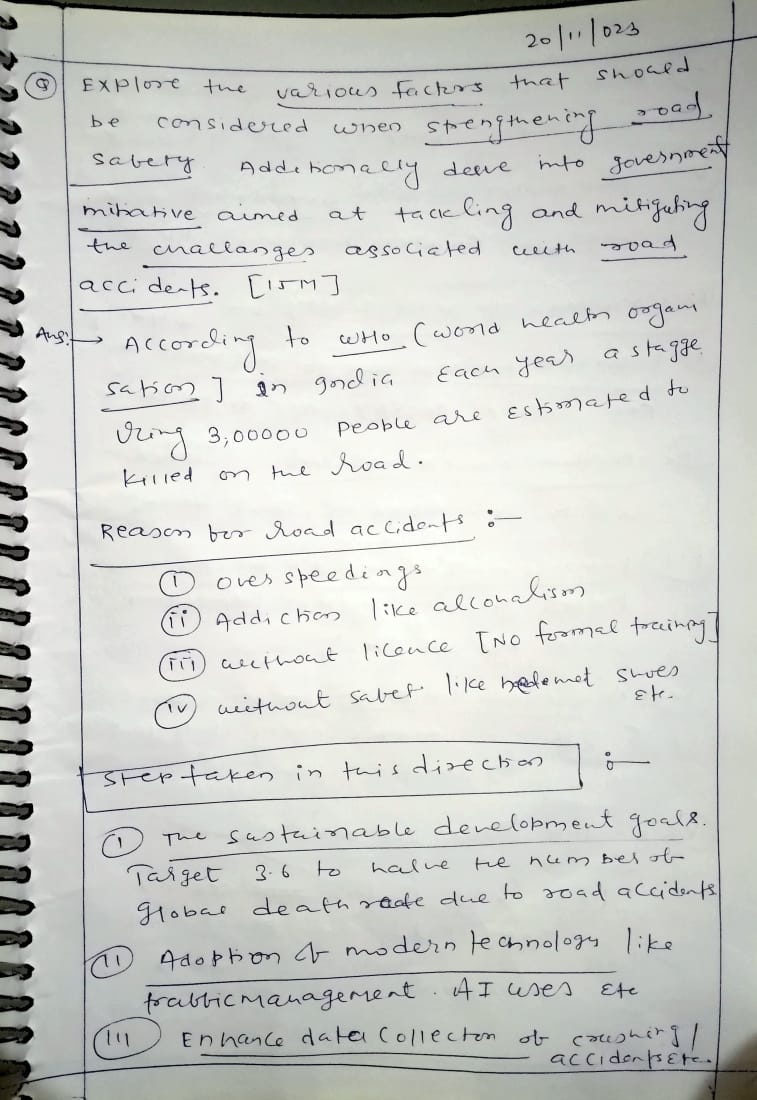 20/11/023
Q Explore the various factors that should
be considered when strengthening road
Safety Additionally delve into government
initiative aimed at tackling and mitigating
the challanges associated with road
accidents. [15M]
Ans:→ According to WHO (world health organi
sation] in India Each year a stagge
ring 3,00000 people are Estimated to
killed on the road.
Reason for road accidents :-
(i) over speedings
(ii) Addiction like alcohalism
(iii) without licence [No formal training]
(iv) without safety like helemet shoes
Etc.
Step taken in this direction :-
(i) The sustainable development goals.
Target 3.6 to halve the number of
global death rate due to road accidents
(ii) Adoption of modern technology like
traffic management. AI uses Etc
(iii) Enhance data collection of crushing/
accidents Etc.